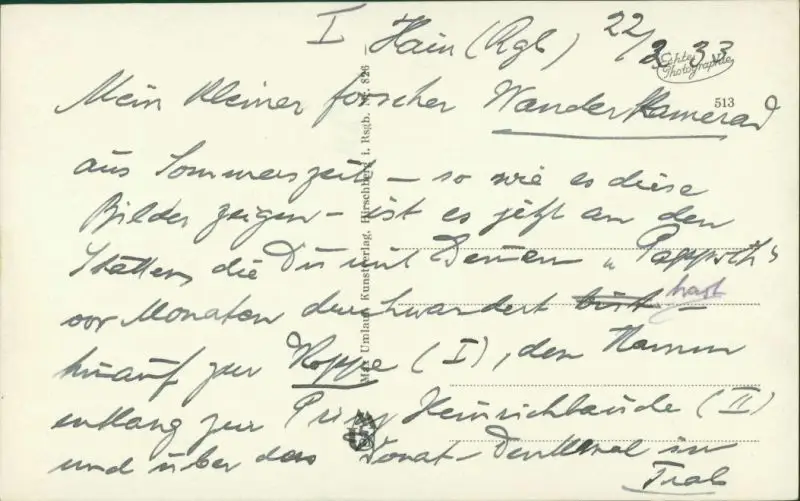 I Hain (Rgb) 22/3 33
Echte Photographie
513
Mein kleiner forscher Wanderkamerad
aus Sommerszeit – so wie es diese
Bilder zeigen – ist es jetzt an den
Stätten, die Du mit Deinen "Pappoth"
vor Monaten durchwandert bist hast –
hinauf zur Koppe (I), den Kamm
entlang zur Prinz Heinrichbaude (II)
und über das Donat-Denkmal in
Trab
Max Umlauf, Kunstverlag, Hirschberg i. Rsgb. Nr. 826